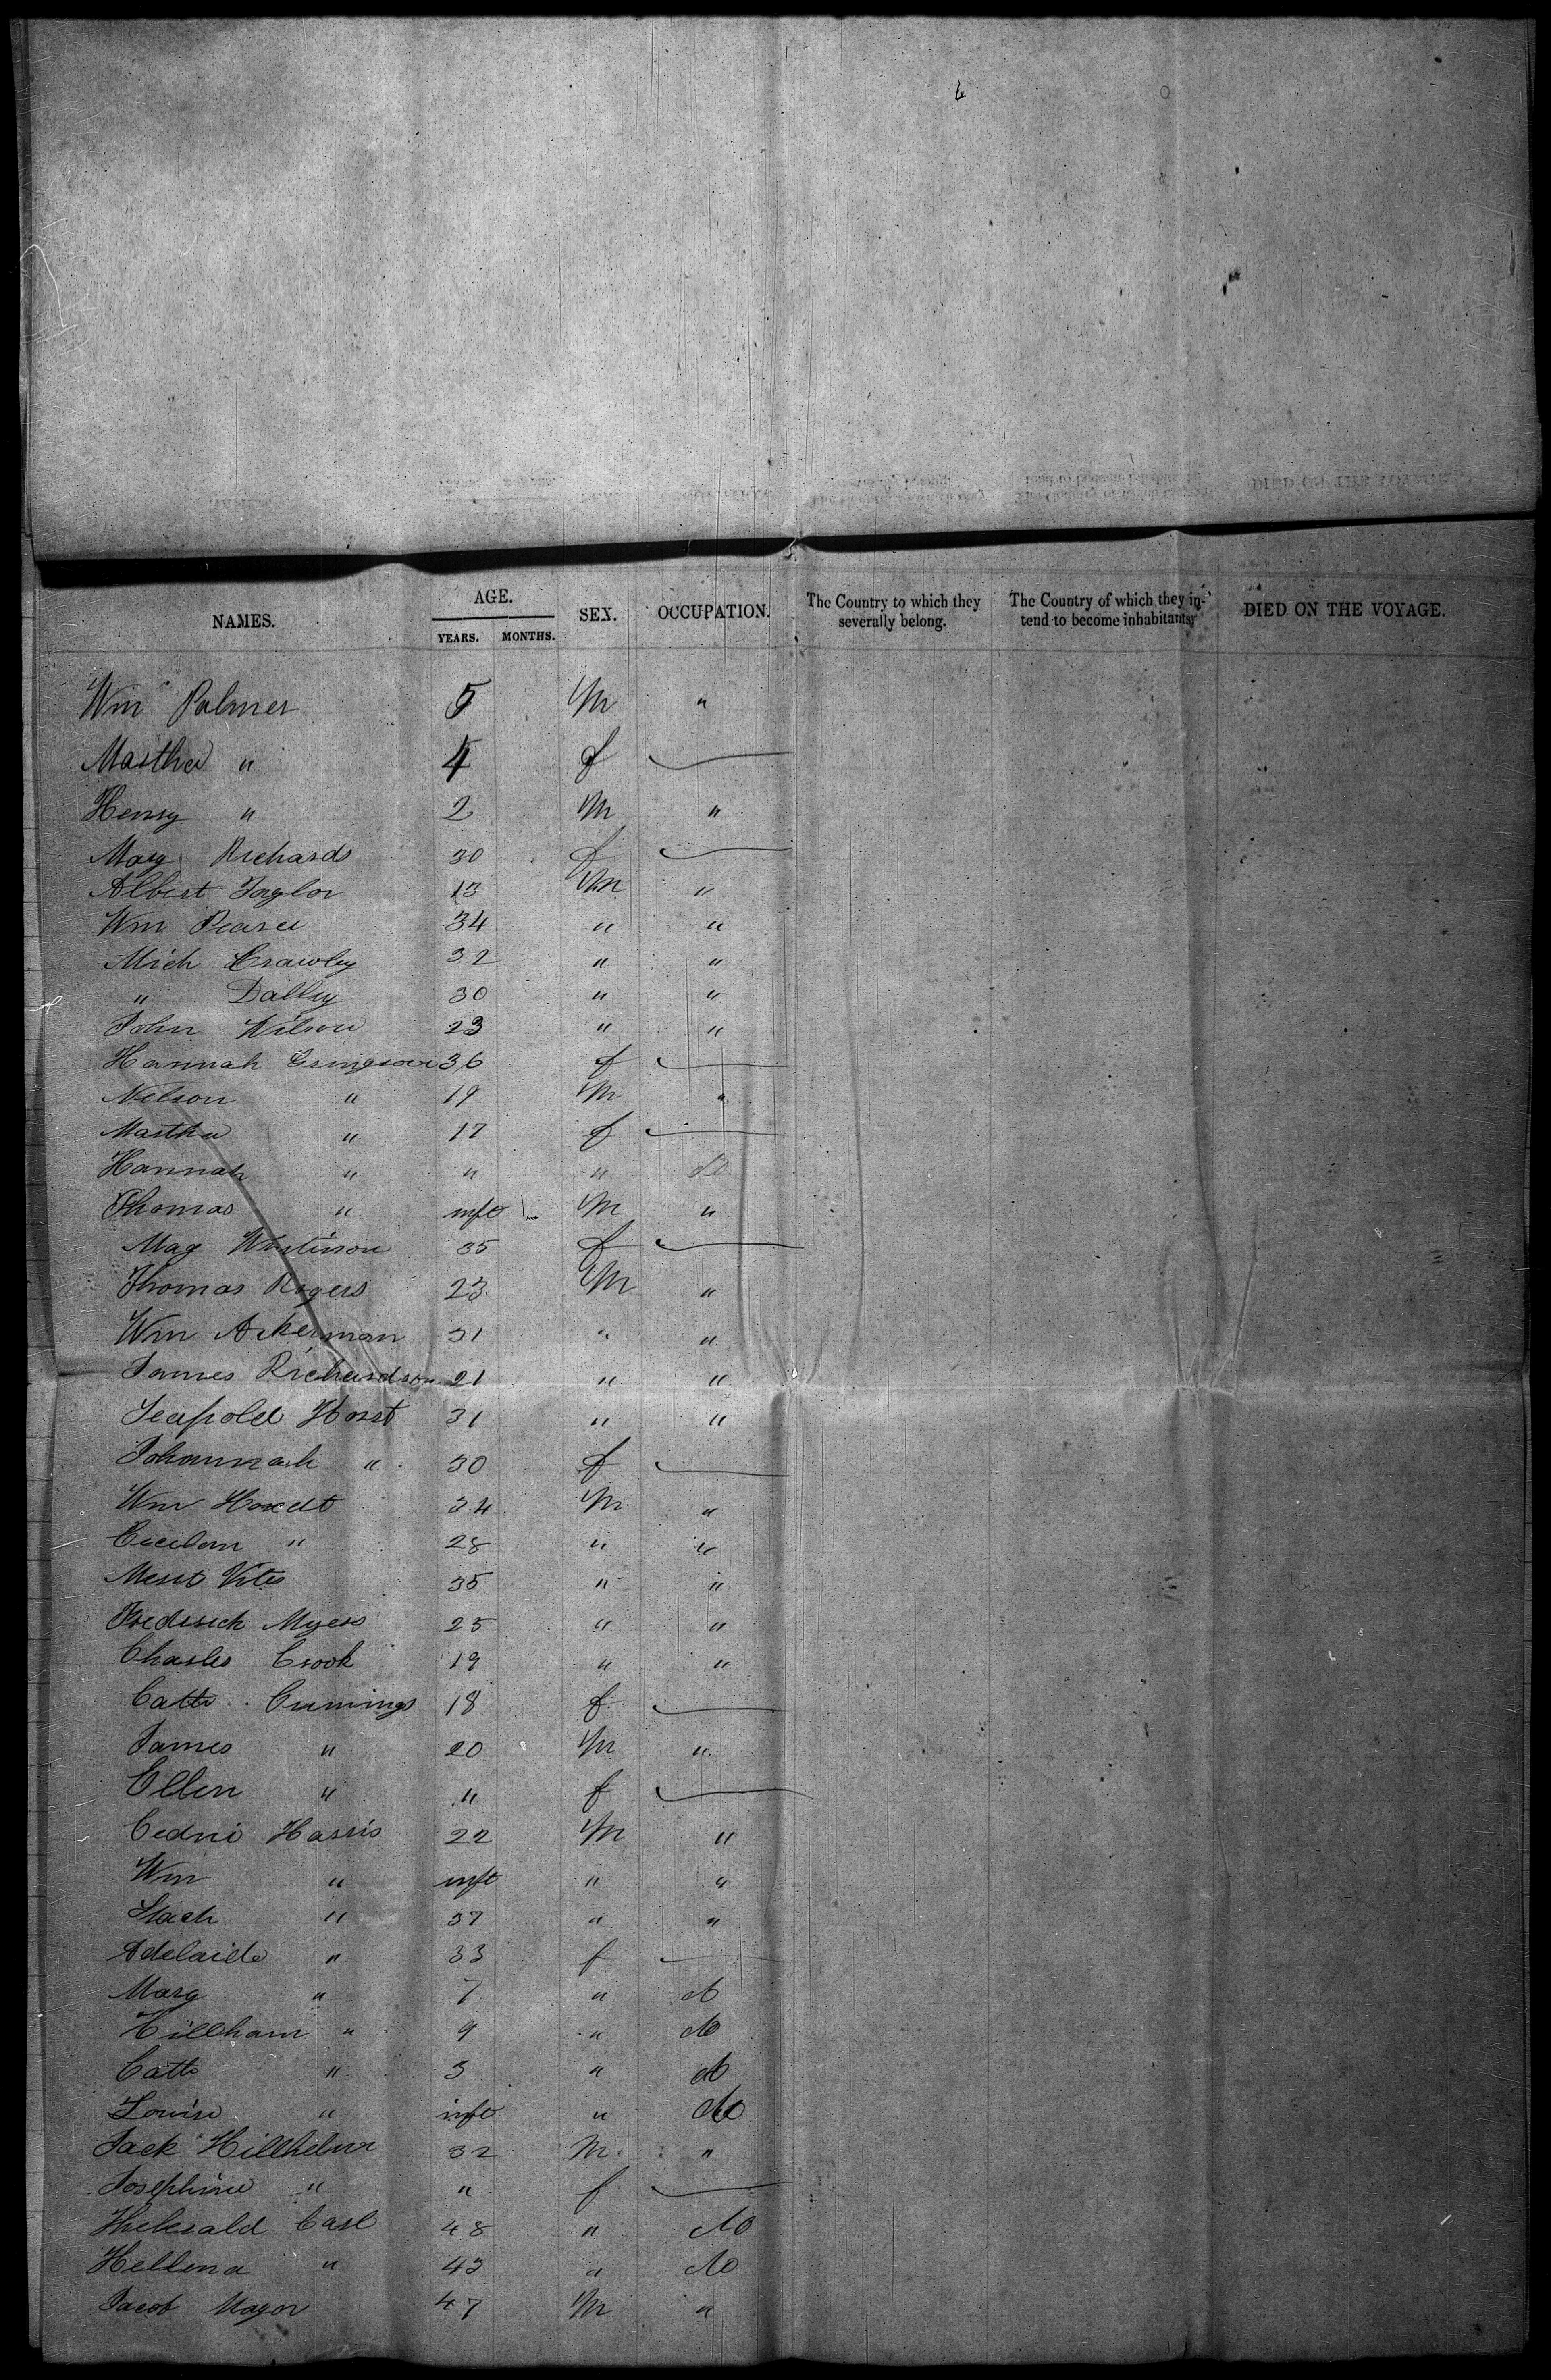 NAMES. AGE. YEARS. MONTHS. SEX. OCCUPATION. The Country to which they severally belong. The Country of which they intend to become inhabitants. DIED ON THE VOYAGE.
Wm Palmer 5 M "
Martha " 4 f
Henry " 2 M "
Mary Richards 30 f
Albert Taylor 13 M "
Wm Pearce 34 " "
Mich Crawley 32 " "
" Dalley 30 " "
John Wilson 23 " "
Hannah 36 f
Nelson " 19 M "
Martha " 17 f
Hannah " " " do
Thomas " inft M "
Mag 35 f
Thomas Rogers 23 M "
Wm Ackerman 31 " "
James Richardson 21 " "
Leapold Horst 31 " "
Johannah " 30 f
Wm 34 M "
" 28 " "
35 " "
Frederick Myers 25 " "
Charles Crook 19 " "
Cath Cumings 18 f
James " 20 M "
Ellen " " f
Harris 22 M "
Wm " inft " "
" 37 " "
Adelaide " 33 f
Mary " 7 " do
" 9 " do
Cath " 3 " do
Louise " inft " do
Jack 32 M "
Josephine " " f
Carl 48 " do
Hellena " 43 " do
Jacob Mayor 47 M "